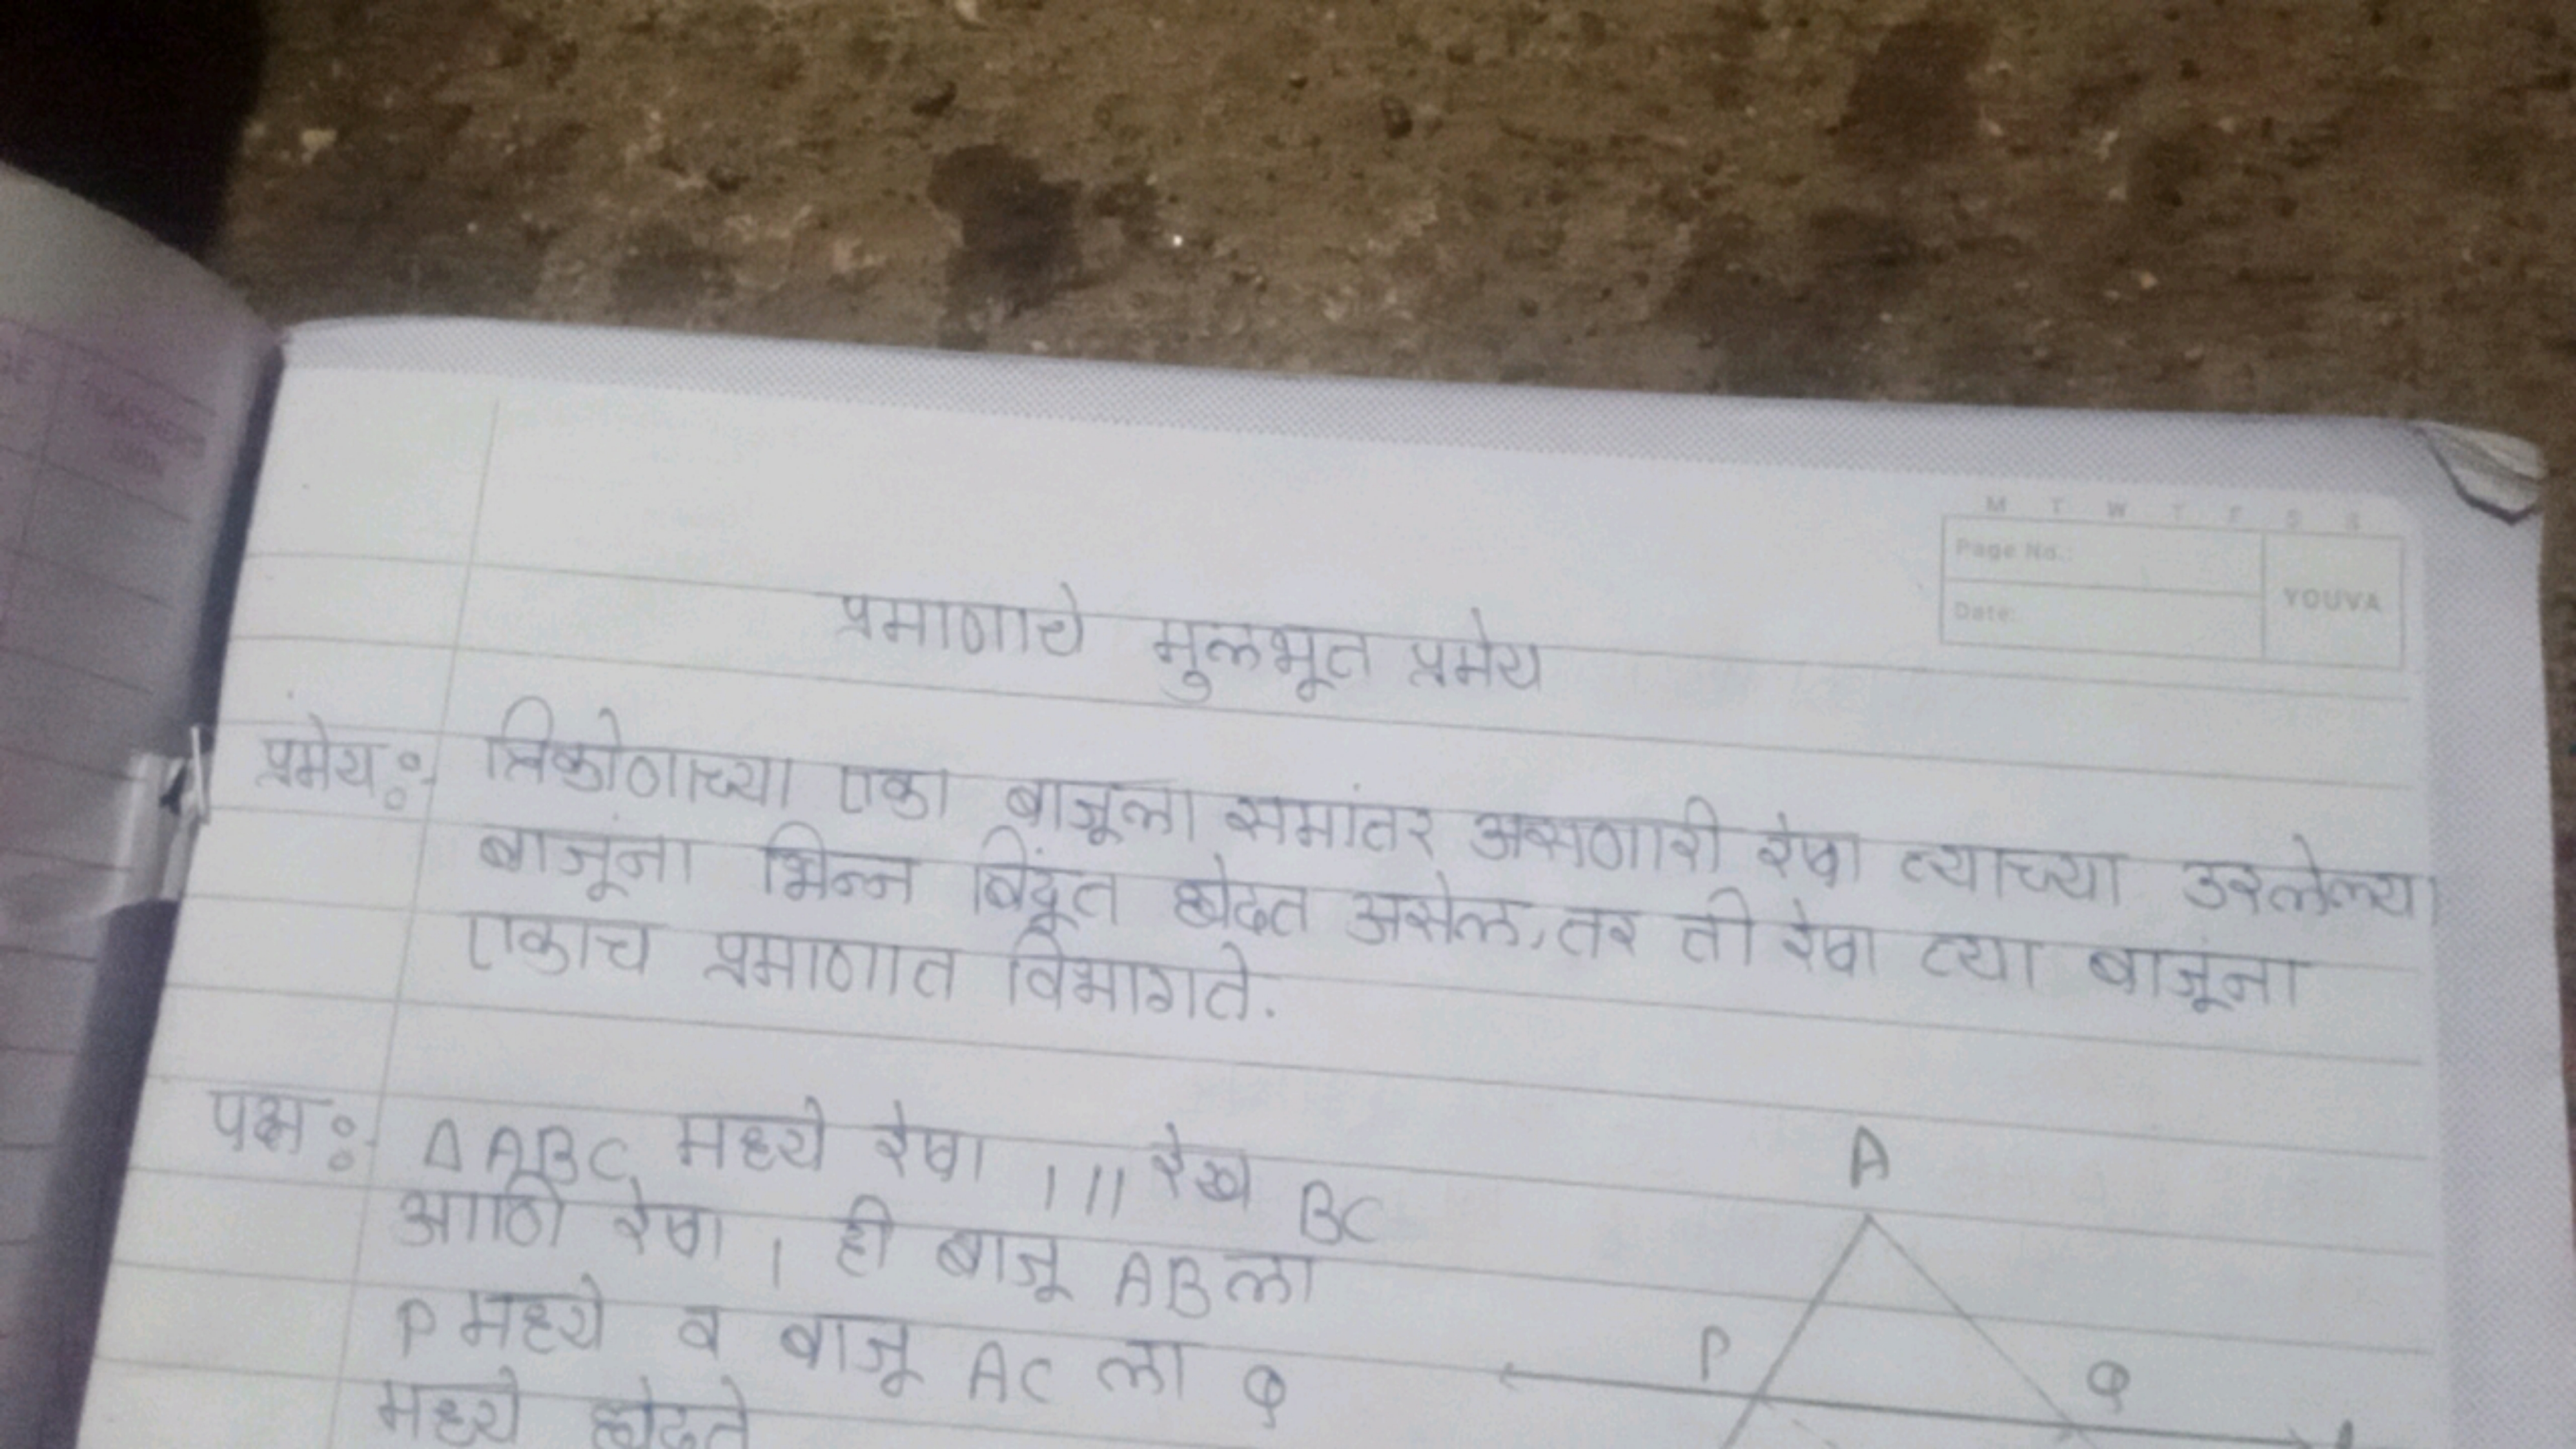 M T W T F S S
Page No.:
Date:
YOUVA
प्रमाणाचे मुलभूत प्रमेय
प्रमेय :- त्रिकोणाच्या एका बाजूला समांतर असणारी रेषा त्याच्या उरलेल्या
बाजूंना भिन्न बिंदूत छेदत असेल, तर ती रेषा त्या बाजूंना
एकाच प्रमाणात विभागते.
पक्ष :- Δ ABC मध्ये रेषा l || रेख BC
आणि रेषा l ही बाजू AB ला
P मध्ये व बाजू AC ला Q
मध्ये छेदते
A
P
Q